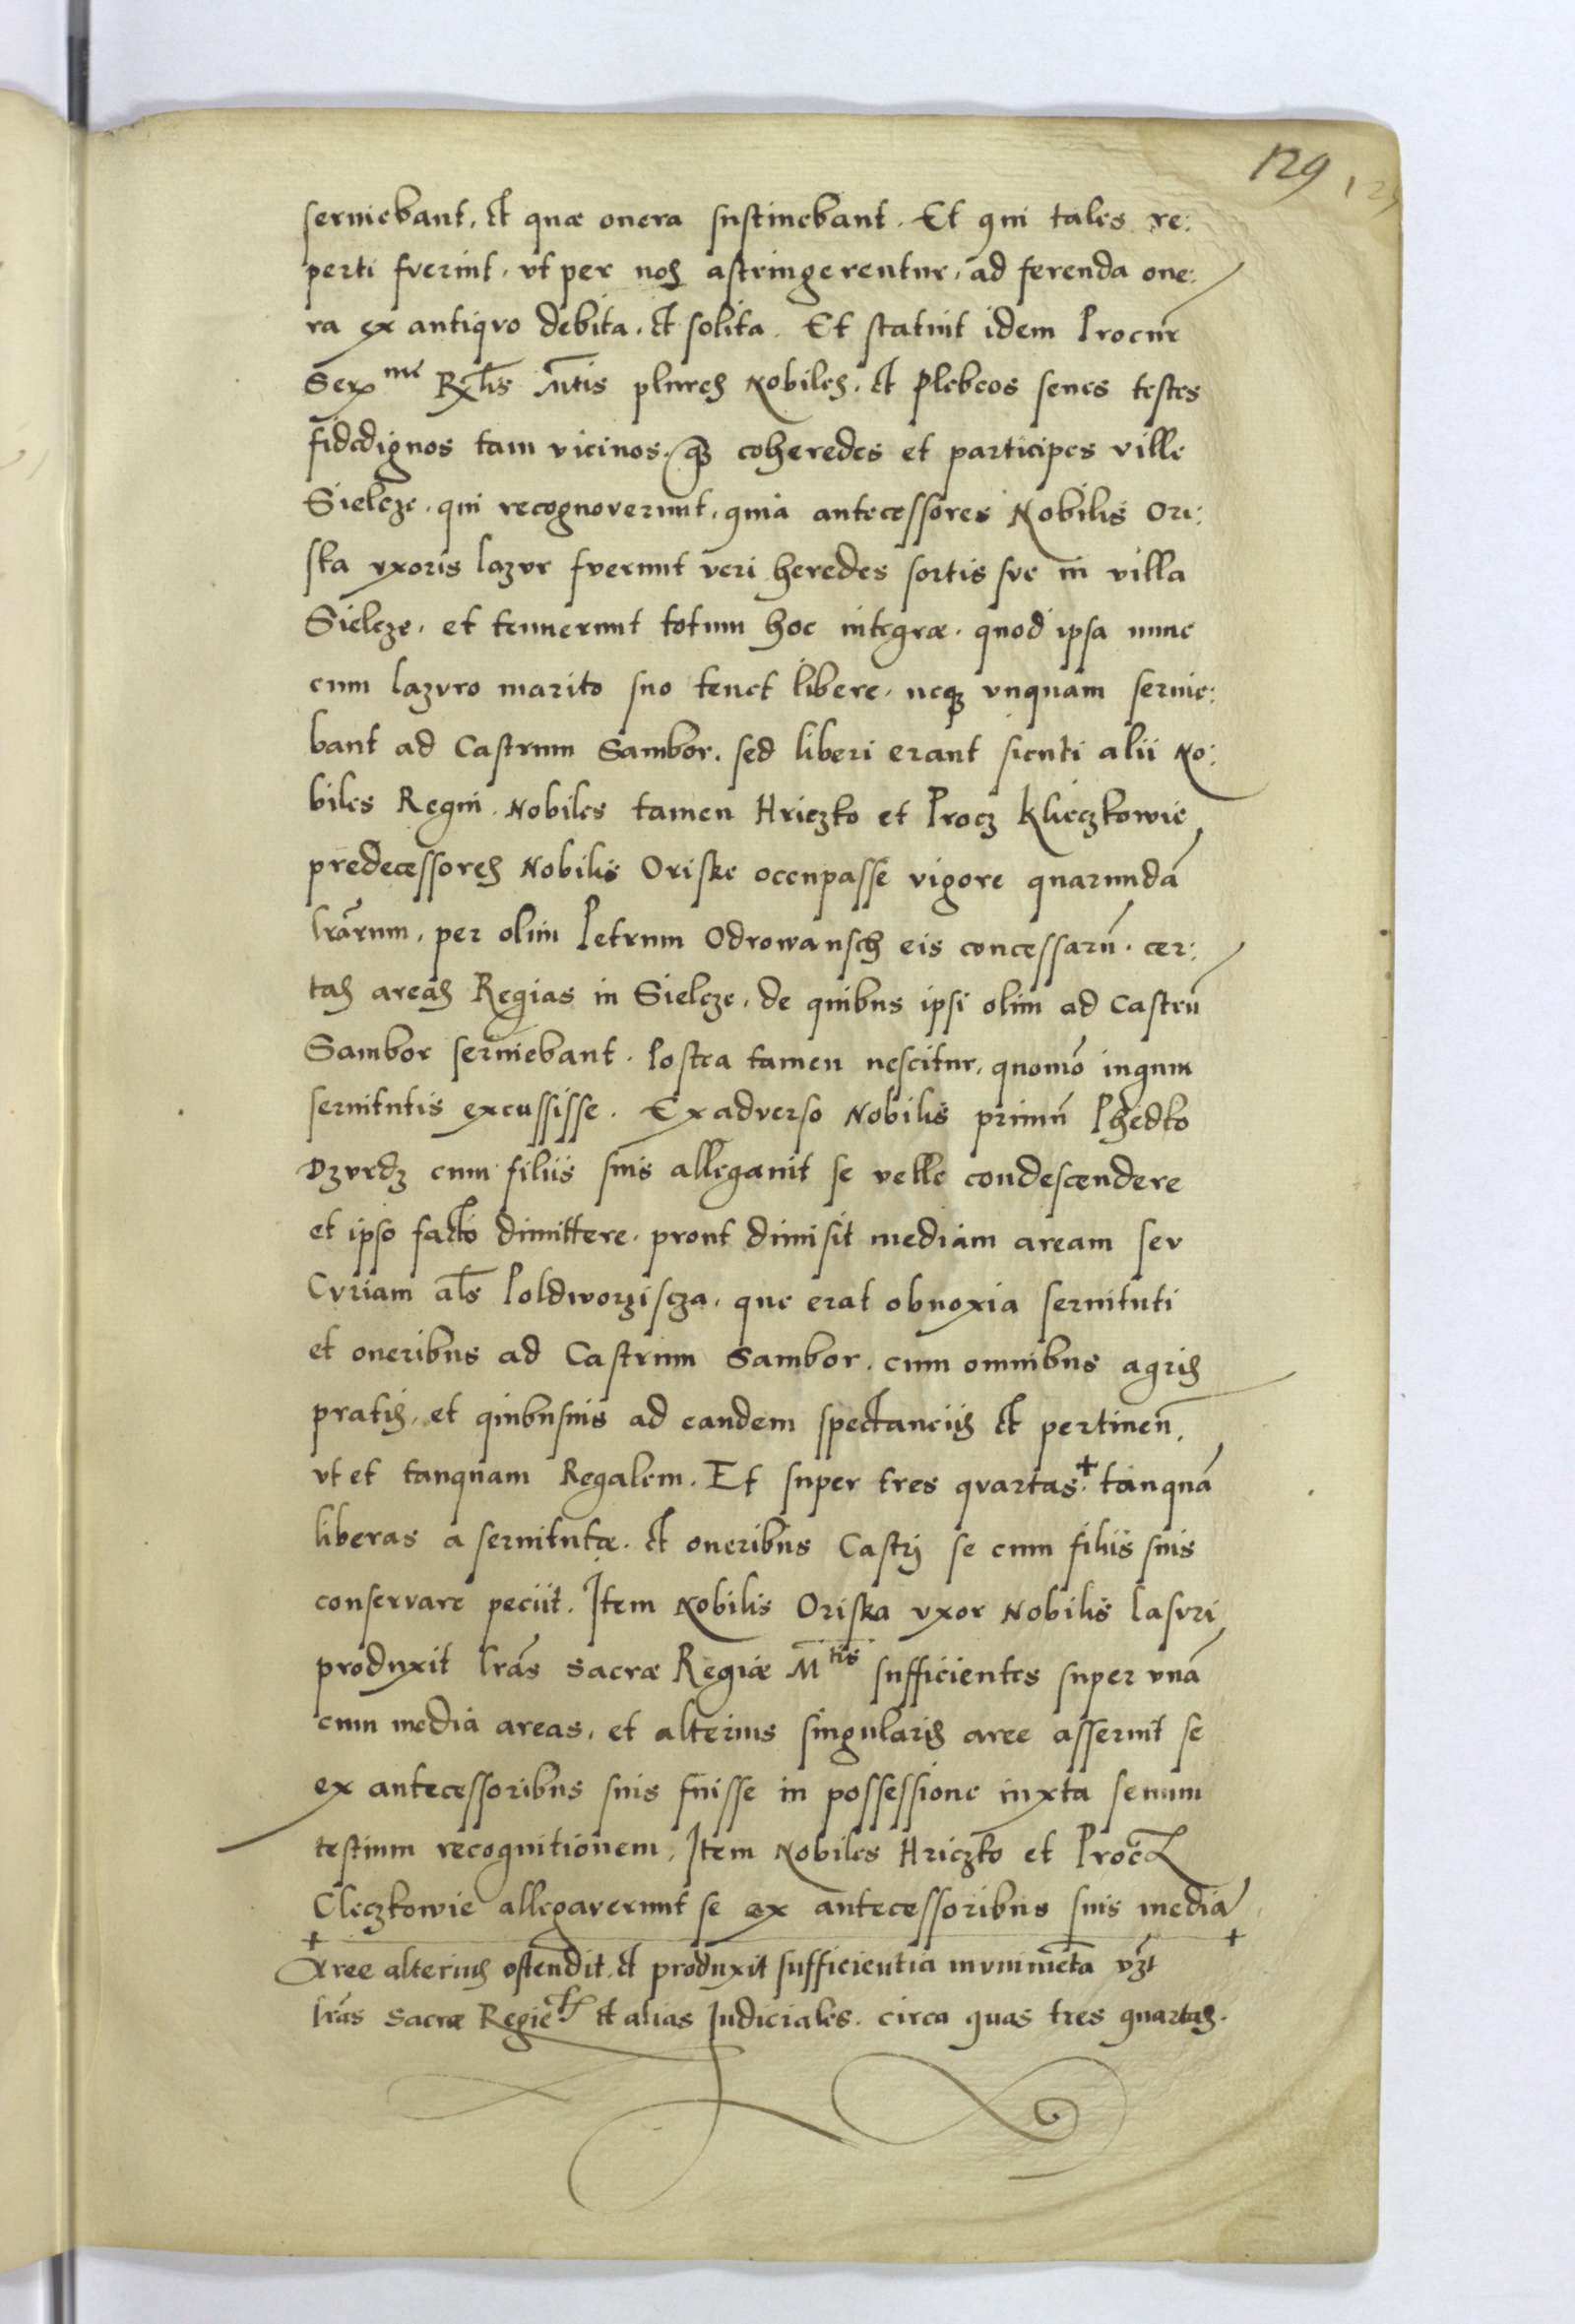 129
serviebant, et quæ onera sustinebant. Et qui tales re:
perti fverint, vt per nos astringerentur, ad ferenda one:
ra ex antiqvo debita, et solita. Et statuit idem Procur̄
Ser^mē R̄ Mtis plures Nobiles, et Plebeos senes testes
fidedignos tam vicinos, q̄з coheredes et participes ville
Sielcze, qui recognoverunt, quia antecessores Nobilis Ori:
ska vxoris lazvr fverunt veri heredes sortis sve in villa
Sielcze, et tenuerunt totum hoc integræ, quod ipsa nunc
cum lazvro marito suo tenet libere, neqз vnquam servie:
bant ad Castrum Sambor, sed liberi erant sicuti alii No:
biles Regni. Nobiles tamen Hriczko et Procz Klieczkowie
predecessores Nobilis Oriske occupasse vigore quarundā
lrārum, per olim Petrum Odrowansch eis concessarū, cer:
tas areas Regias in Sielcze, de quibus ipsi olim ad Castrū
Sambor serviebant. Postea tamen nescitur, quomō iugum
servitutis excussisse. Ex adverso Nobilis primū Phedko
Dzvrdz cum filiis suis allegauit se velle condescendere
et ipso facto dimittere, prout dimisit mediam aream sev
Cvriam als Poldworziscza, que erat obnoxia servituti
et oneribus ad Castrum Sambor, cum omnibus agris
pratis, et quibusuis ad eandem spectanciis et pertinen̄,
vt et tanquam Regalem. Et super tres qvartas + tanquā
liberas a servitutæ, et oneribus Castrj se cum filiis suis
conservare peciit. Item Nobilis Oriska vxor Nobilis Lasvri
produxit lrās Sacræ Regiæ M^tis sufficientes super vnā
cum media areas, et alterius singularis aree asseruit se
ex antecessoribus suis fuisse in possessione iuxta senum
testium recognitionem, Item Nobiles Hriczko et Procz
Cleczkowie allegaverunt se ex antecessoribus suis mediā
+ Aree alterius ostendit, et produxit sufficientia mvnimēta vzt +
lrās Sacræ Regie et alias Judiciales, circa quas tres quartas.